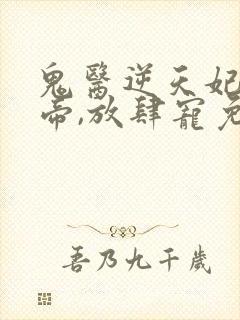 鬼醫逆天妃
帝,放肆寵
吾乃九千歲